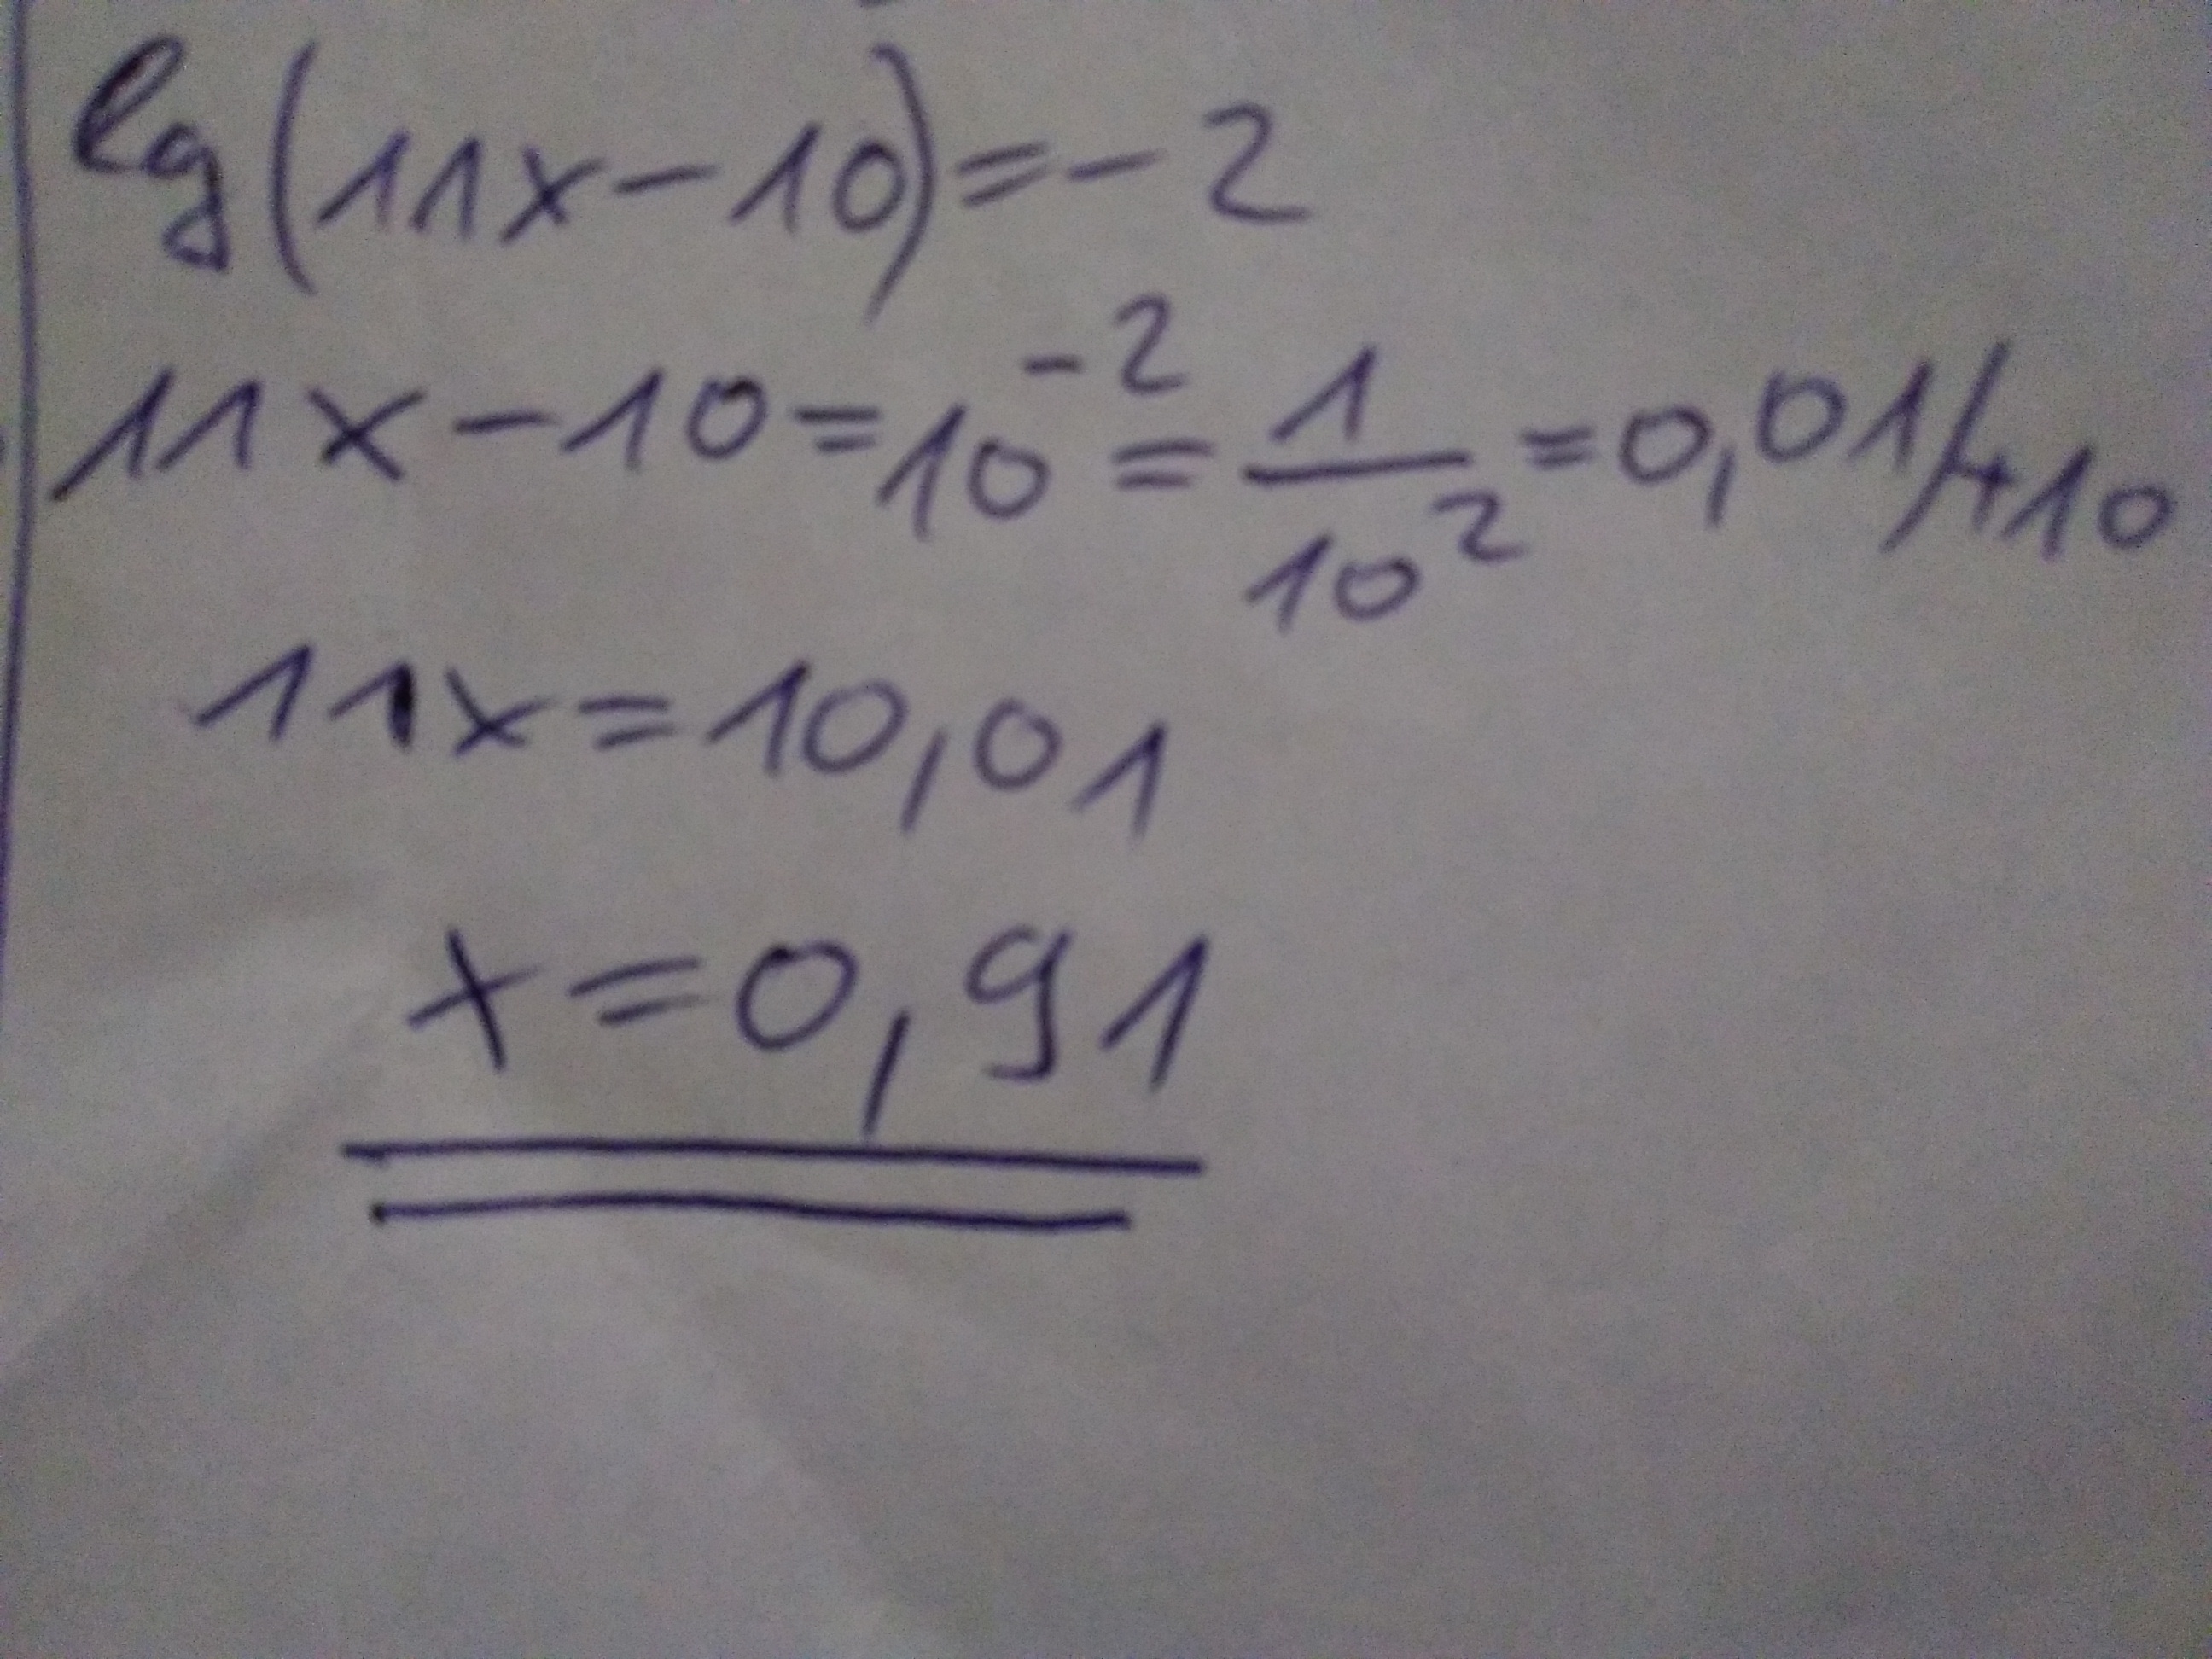 lg(11x-10)=-2
11x-10=10⁻²=1/10²=0,01/+10
11x=10,01
x=0,91